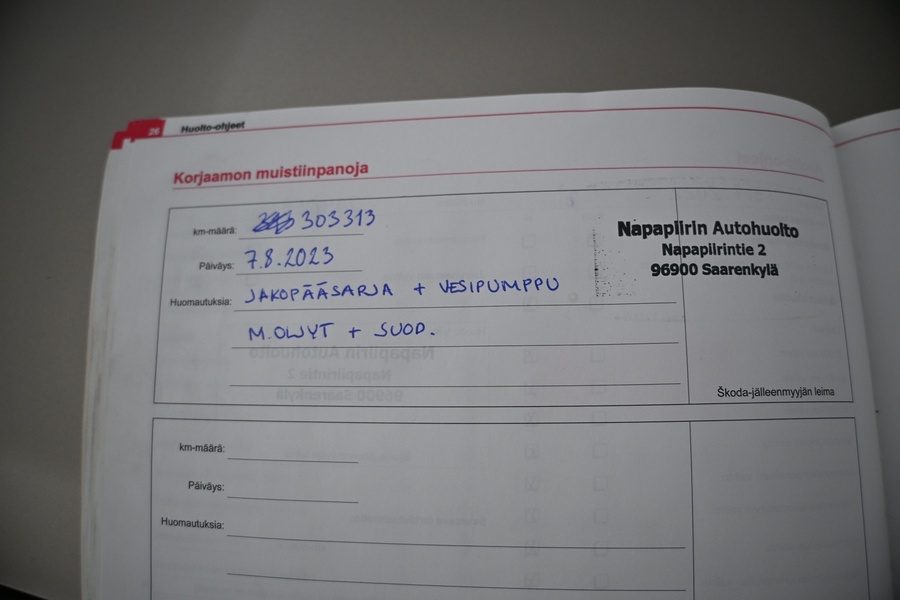 26 Huolto-ohjeet
Korjaamon muistiinpanoja
km-määrä: 303313
Päiväys: 7.8.2023
Huomautuksia: JAKOPÄÄSARJA + VESIPUMPPU
M.ÖLJYT + SUOD.
Napapiirin Autohuolto
Napapiirintie 2
96900 Saarenkylä
Škoda-jälleenmyyjän leima
km-määrä:
Päiväys:
Huomautuksia: